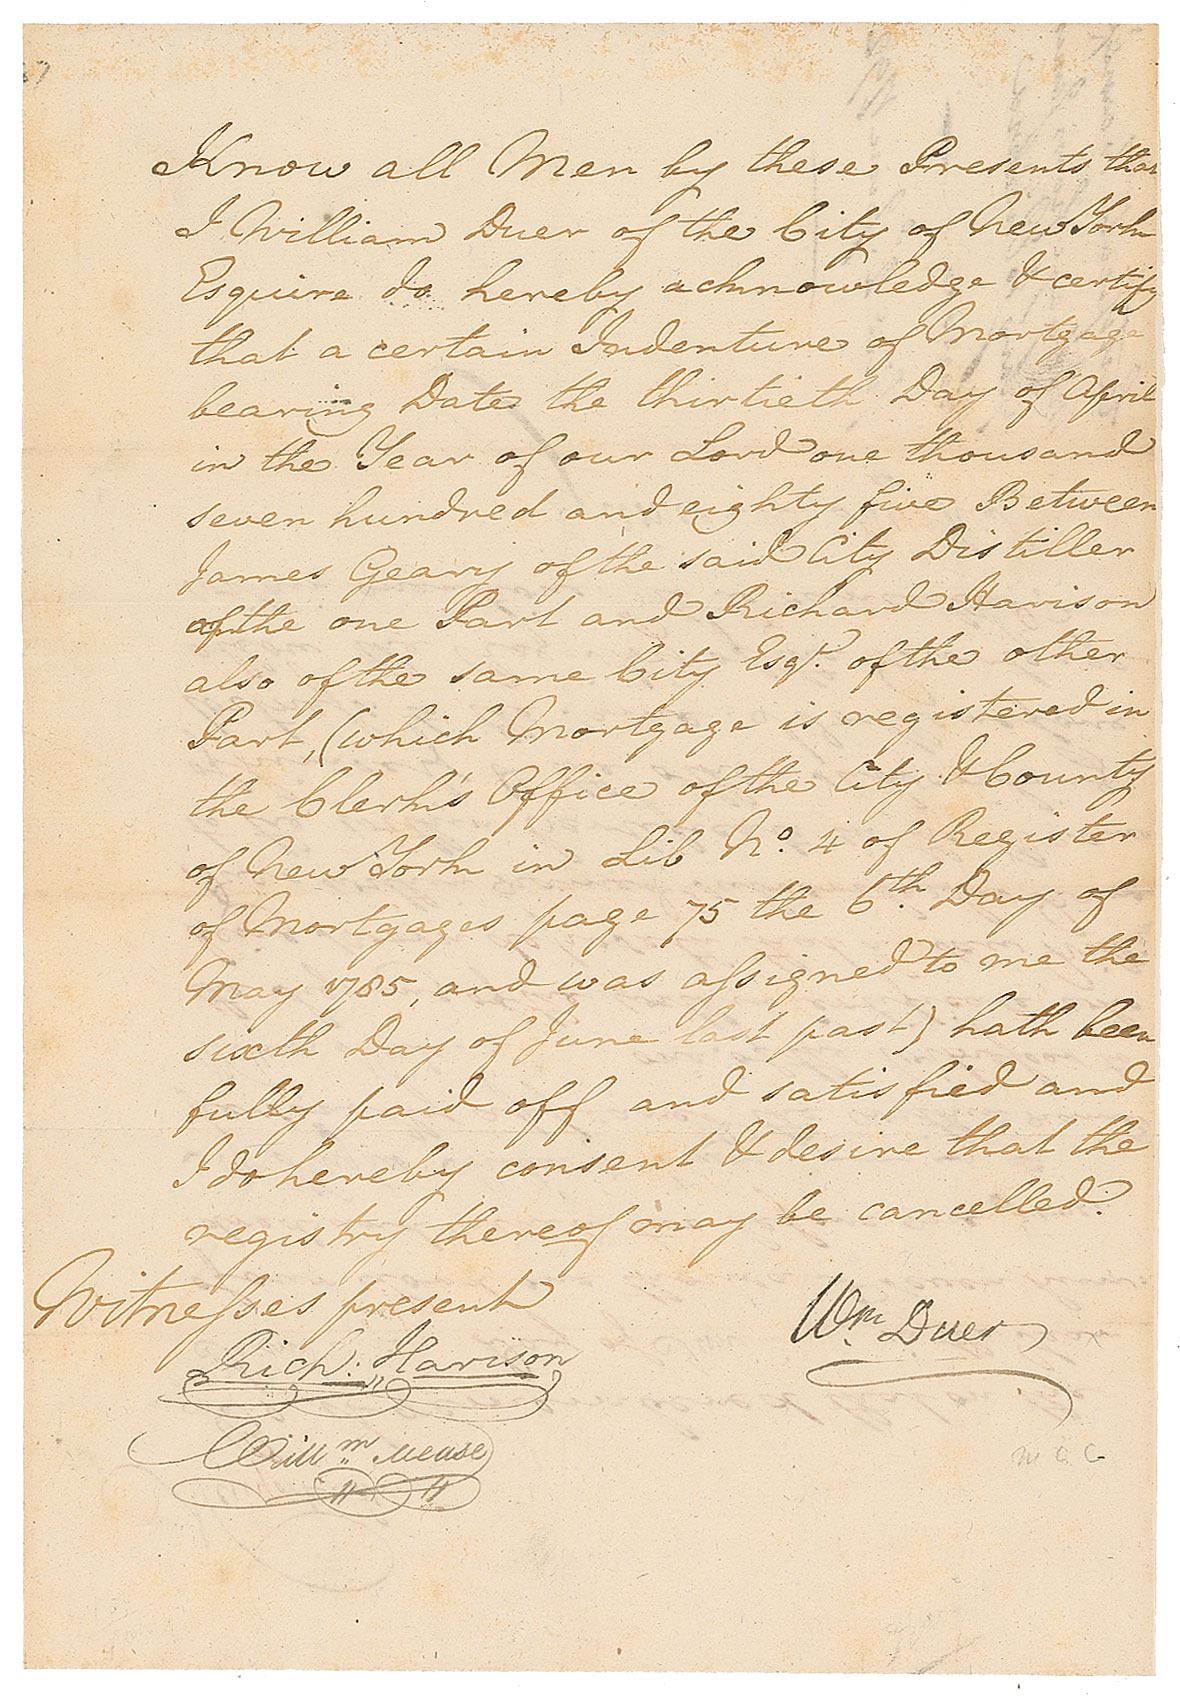 Know all Men by these Presents that
I William Duer of the City of New York
Esquire do hereby acknowledge & certify
that a certain Indenture of Mortgage
bearing Date the thirtieth Day of April
in the Year of our Lord one thousand
seven hundred and eighty five Between
James Geary of the said City Distiller
of the one Part and Richard Harison
also of the same City Esqr. of the other
Part, (which Mortgage is registered in
the Clerk's Office of the City & County
of New York in Lib No. 4 of Register
of Mortgages page 75 the 6th. Day of
May 1785, and was assigned to me the
sixth Day of June last past) hath been
fully paid off and satisfied and
I do hereby consent & desire that the
registry thereof may be cancelled.
Witnesses present
Wm Duer
Rich: Harison
Willm Mease